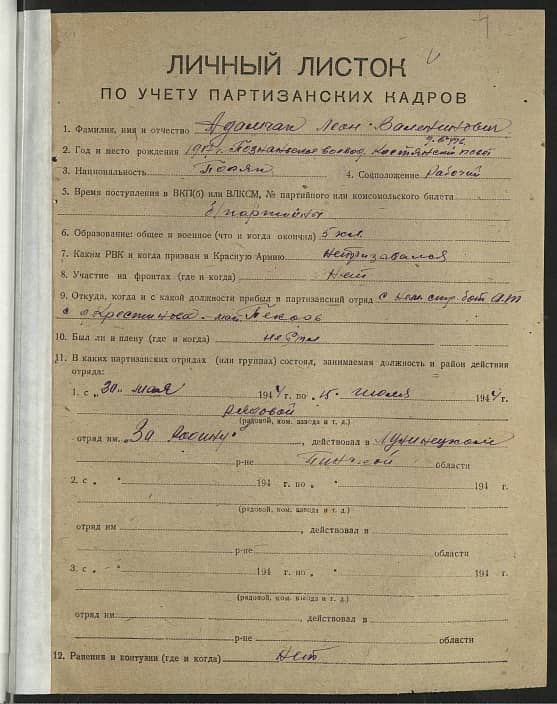 ЛИЧНЫЙ ЛИСТОК
ПО УЧЕТУ ПАРТИЗАНСКИХ КАДРОВ
1. Фамилия, имя и отчество Адамчак Леон Валентинович
2. Год и место рождения Познаньское воевод.
3. Национальность Поляк 4. Соцположение Рабочий
5. Время поступления в ВКП(б) или ВЛКСМ, № партийного или комсомольского билета
б/партийный
6. Образование: общее и военное (что и когда окончил) 5 кл.
7. Каким РВК и когда призван в Красную Армию непризавался
8. Участие на фронтах (где и когда) Нет
9. Откуда, когда и с какой должности прибыл в партизанский отряд с
с
10. Был ли в плену (где и когда) не был
11. В каких партизанских отрядах (или группах) состоял, занимаемая должность и район действия
отряда:
1. с „30“ мая 1944 г. по 15 июля 1944 г.
рядовой
(рядовой, ком. взвода и т. д.)
отряд им. „За Родину“, действовал в Лунинецком
р-не Пинской области
2. с „ “ 194 г. по „ “ 194 г.
(рядовой, ком. взвода и т. д.)
отряд им , действовал в
р-не области
3. с „ “ 194 г. по „ “ 194 г.
(рядовой, ком. взвода и т. д.)
отряд им. , действовал в
р-не области
12. Ранения и контузии (где и когда) Нет